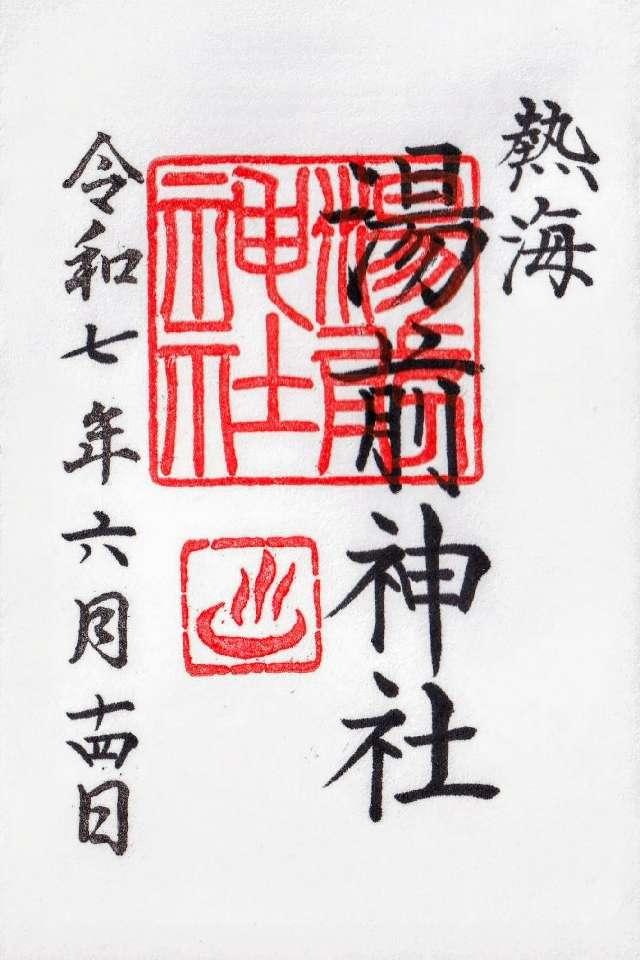 熱海
湯前神社
湯前
神社
令和七年六月十四日